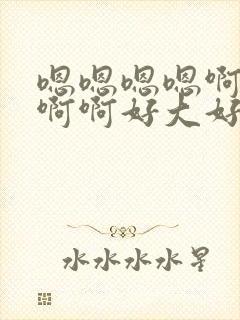 嗯嗯嗯嗯啊
啊啊好大好
水水水水星